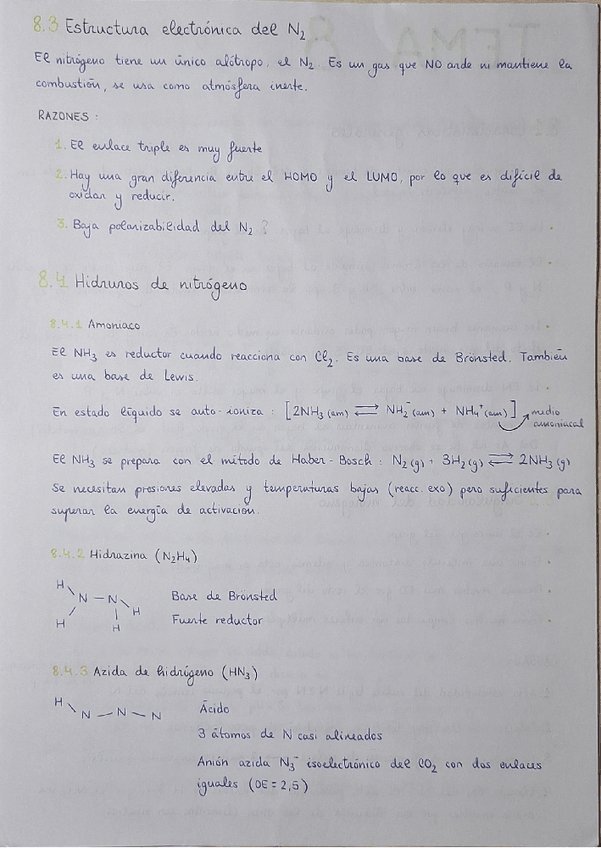 8.3 Estructura electrónica del N₂
El nitrógeno tiene un único alótropo, el N₂. Es un gas que NO arde ni mantiene la
combustión, se usa como atmósfera inerte.
RAZONES:
1. El enlace triple es muy fuerte
2. Hay una gran diferencia entre el HOMO y el LUMO, por lo que es difícil de
oxidar y reducir.
3. Baja polarizabilidad del N₂ ?
8.4 Hidruros de nitrógeno
8.4.1 Amoniaco
El NH₃ es reductor cuando reacciona con Cl₂. Es una base de Brönsted. También
es una base de Lewis.
En estado líquido se auto-ioniza: [2NH₃ (am) ⇌ NH₂⁻ (am) + NH₄⁺ (am)] medio
amoniacal
El NH₃ se prepara con el método de Haber-Bosch: N₂ (g) + 3H₂ (g) ⇌ 2NH₃ (g)
Se necesitan presiones elevadas y temperaturas bajas (reacc. exo) pero suficientes para
superar la energía de activación.
8.4.2 Hidrazina (N₂H₄)
H
N – N
H
H
H
Base de Brönsted
Fuerte reductor
8.4.3 Azida de hidrógeno (HN₃)
H
N – N – N
Ácido
3 átomos de N casi alineados
Anión azida N₃⁻ isoelectrónico del CO₂ con dos enlaces
iguales (OE = 2,5)